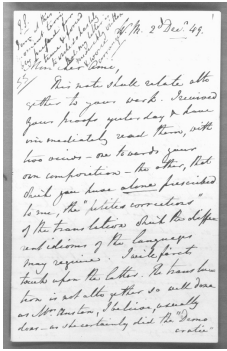 W.R. 2d Decr 49.
Mon cher ame,
This note shall relate alto
gether to your work. I received
your proofs yesterday & have
immediately read them, with
two views – one towards your
own composition – the other, that
which you have alone prescribed
to me, the "petites corrections"
of the translation which the differ
ent idioms of the languages
may require. I will first
touch upon the latter. The transla
tion is not altogether so well done
as Mrs Austin, I believe, usually
does – as she certainly did the "Demo
cratie"